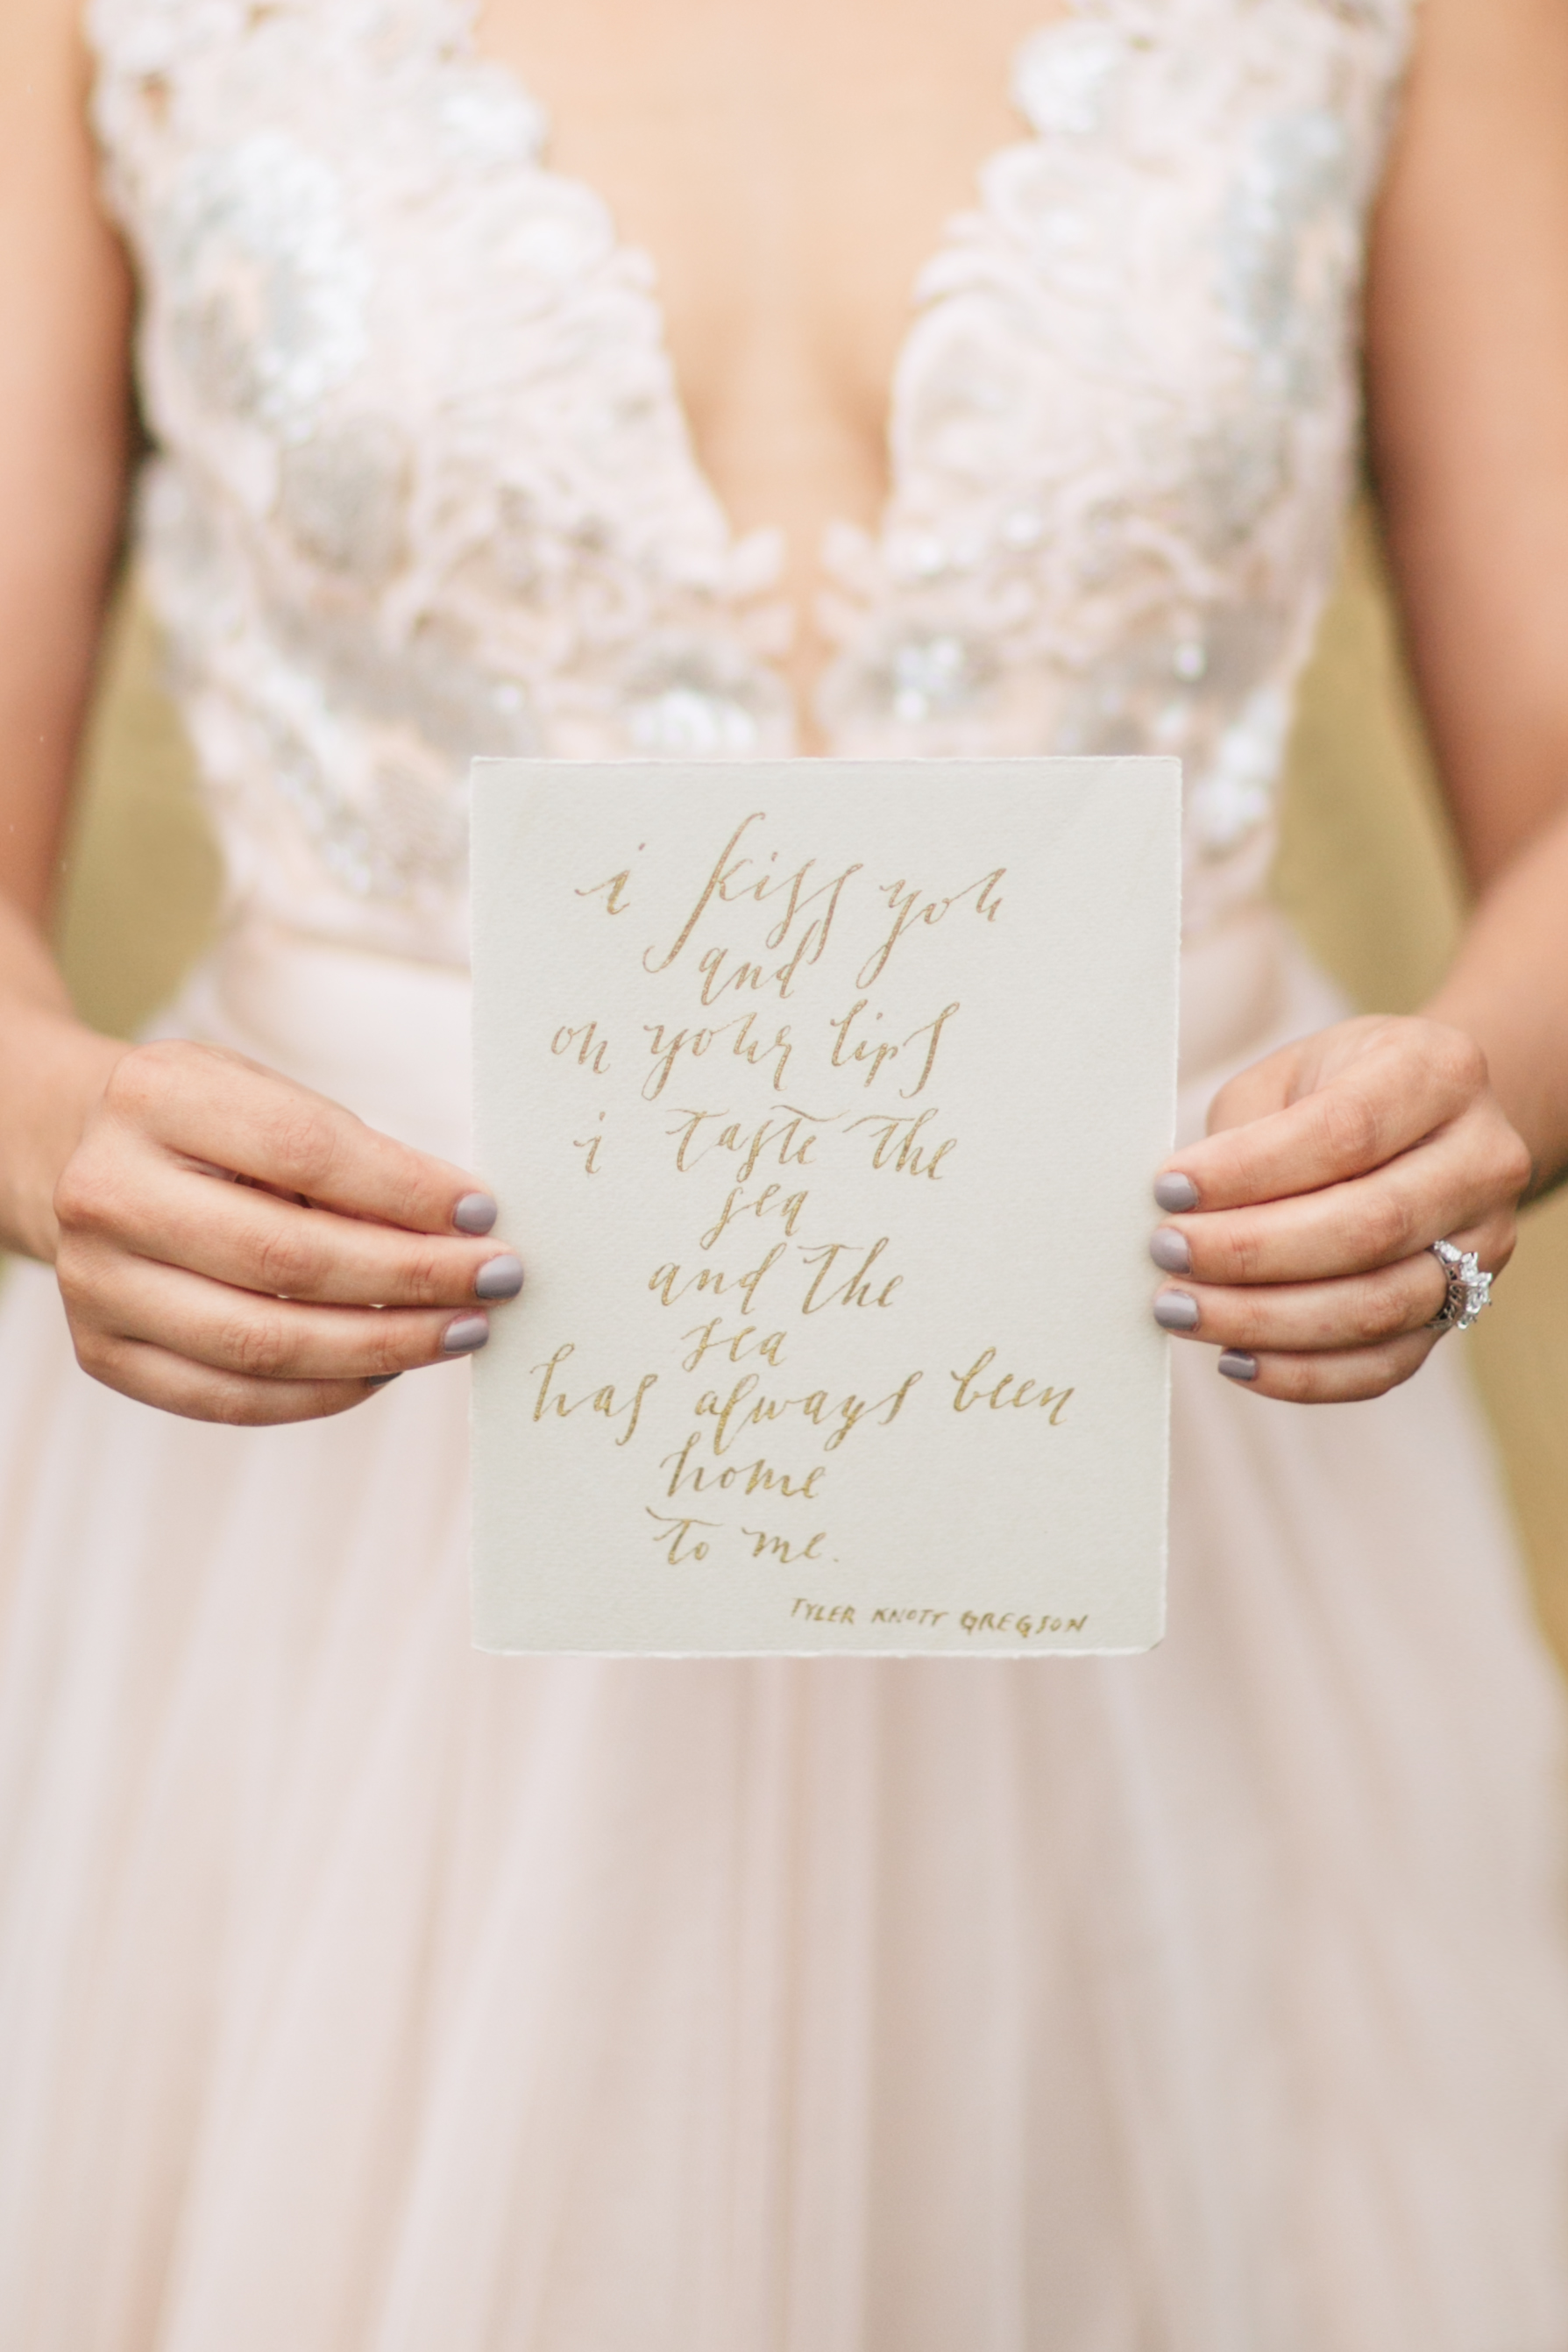 i kiss you
and
on your lips
i taste the
sea
and the
sea
has always been
home
to me.
TYLER KNOTT GREGSON